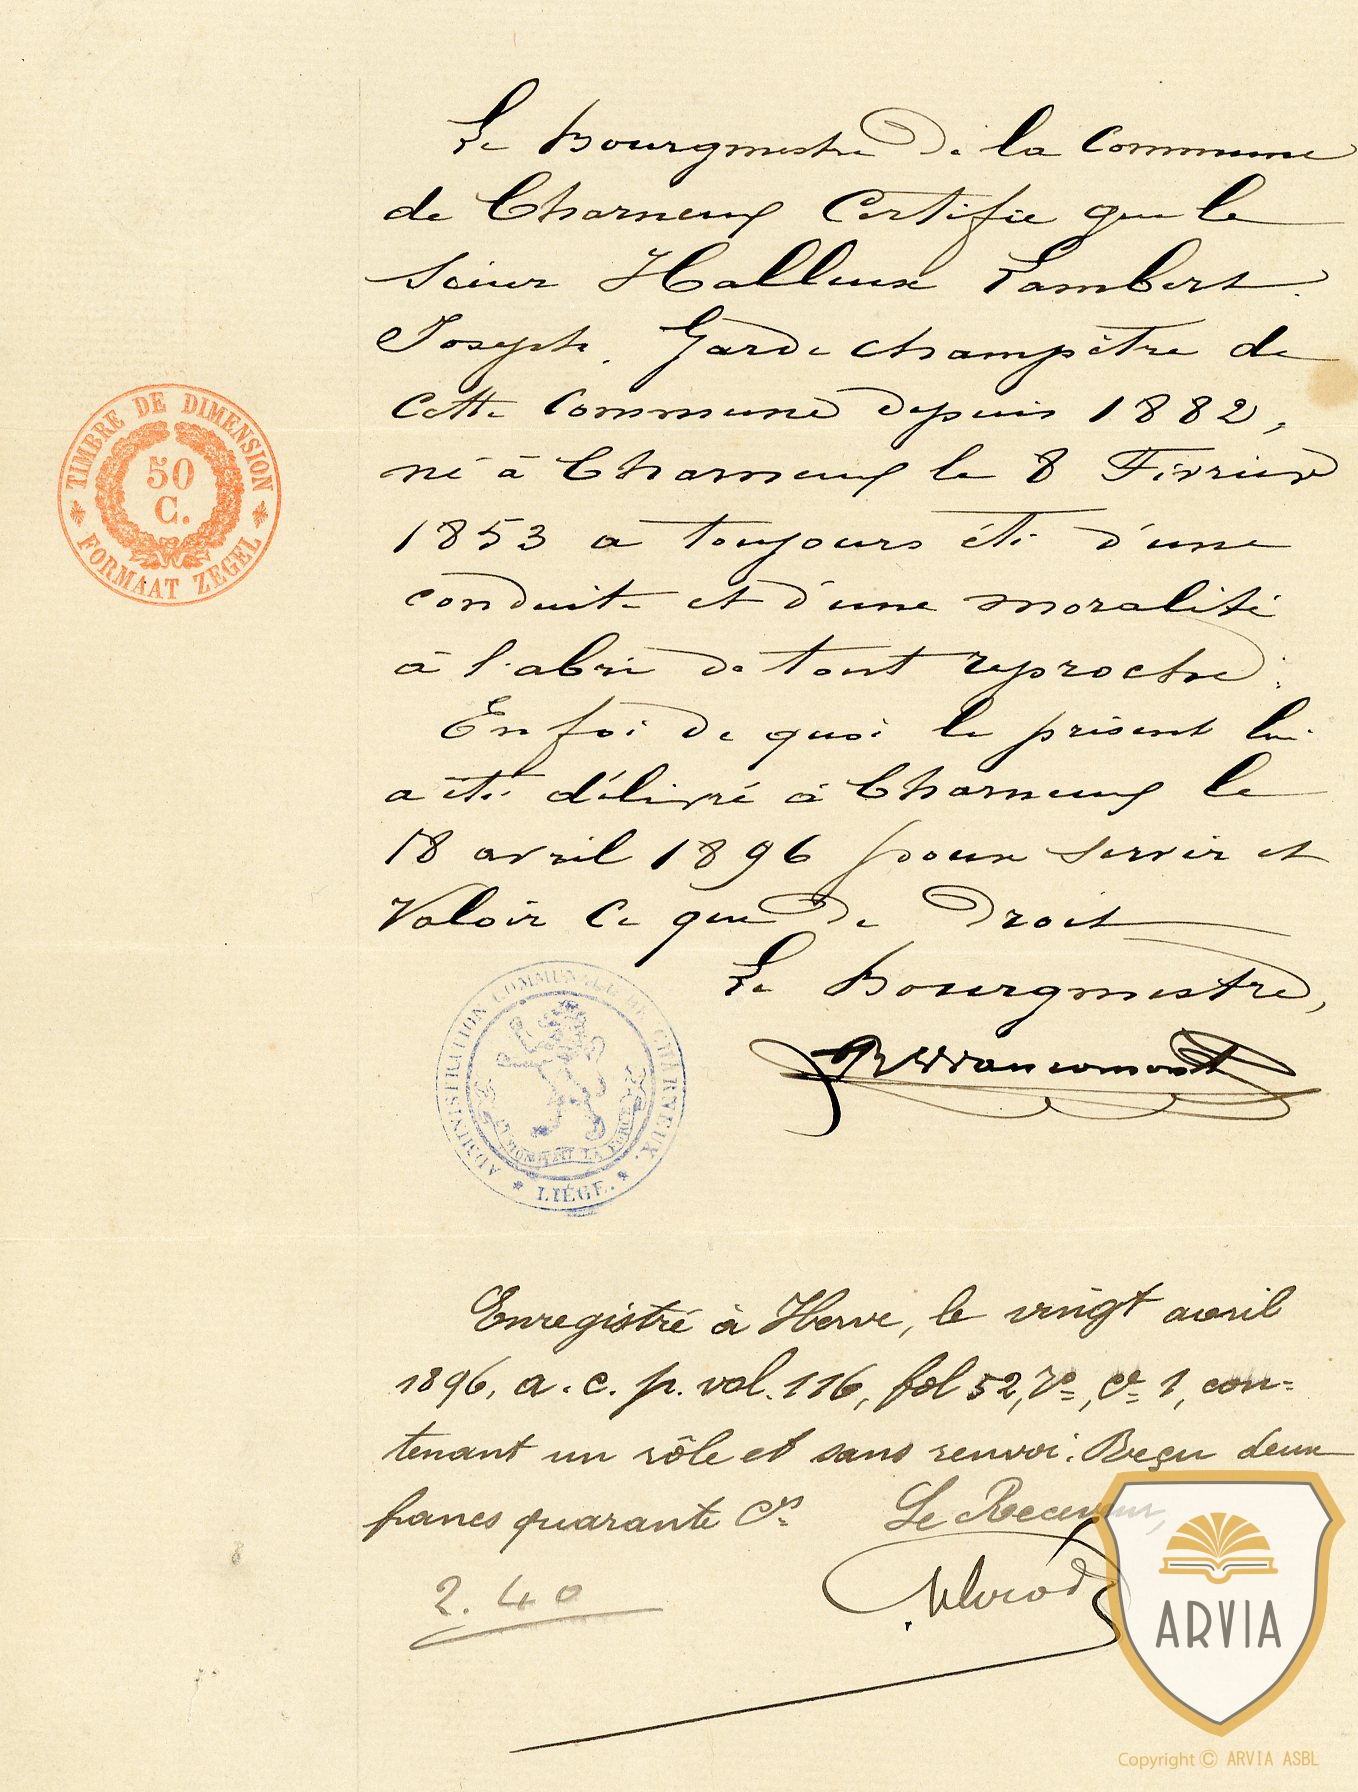 Le Bourgmestre de la Commune
de Charneux Certifie que le
Sieur Halleux Lambert
Joseph. Garde champêtre de
cette Commune depuis 1882,
né à Charneux le 8 Février
1853 a toujours été d'une
conduite et d'une moralité
à l'abri de tout reproche.
En foi de quoi le présent lui
a été délivré à Charneux le
18 avril 1896 pour servir et
Valoir ce que de Droit
Le Bourgmestre,
TIMBRE DE DIMENSION
50
C.
FORMAAT ZEGEL
ADMINISTRATION COMMUNALE DE CHARNEUX.
L'UNION FAIT LA FORCE
LIÉGE.
Enregistré à Herve, le vingt avril
1896, a. c. p. vol. 116, fol 52, Vo, Ce 1, con=
tenant un rôle et sans renvoi. Reçu deux
francs quarante Cs
Le Receveur,
2.40
ARVIA
Copyright © ARVIA ASBL